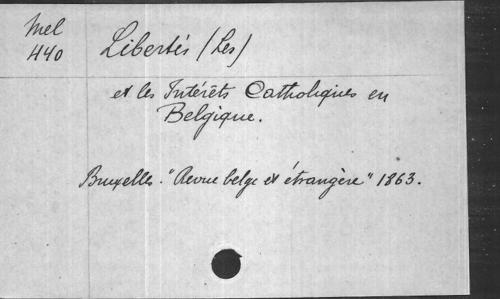 Mel
440
Libertés (Les)
et les Intérêts Catholiques en
Belgique.
Bruxelles. "Revue belge et étrangère" 1863.